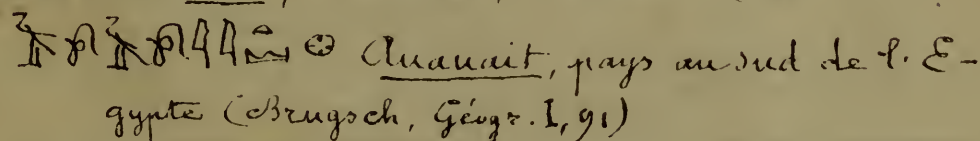 Auauait, pays au sud de l'E-
gypte (Brugsch, Géogr. I, 91)